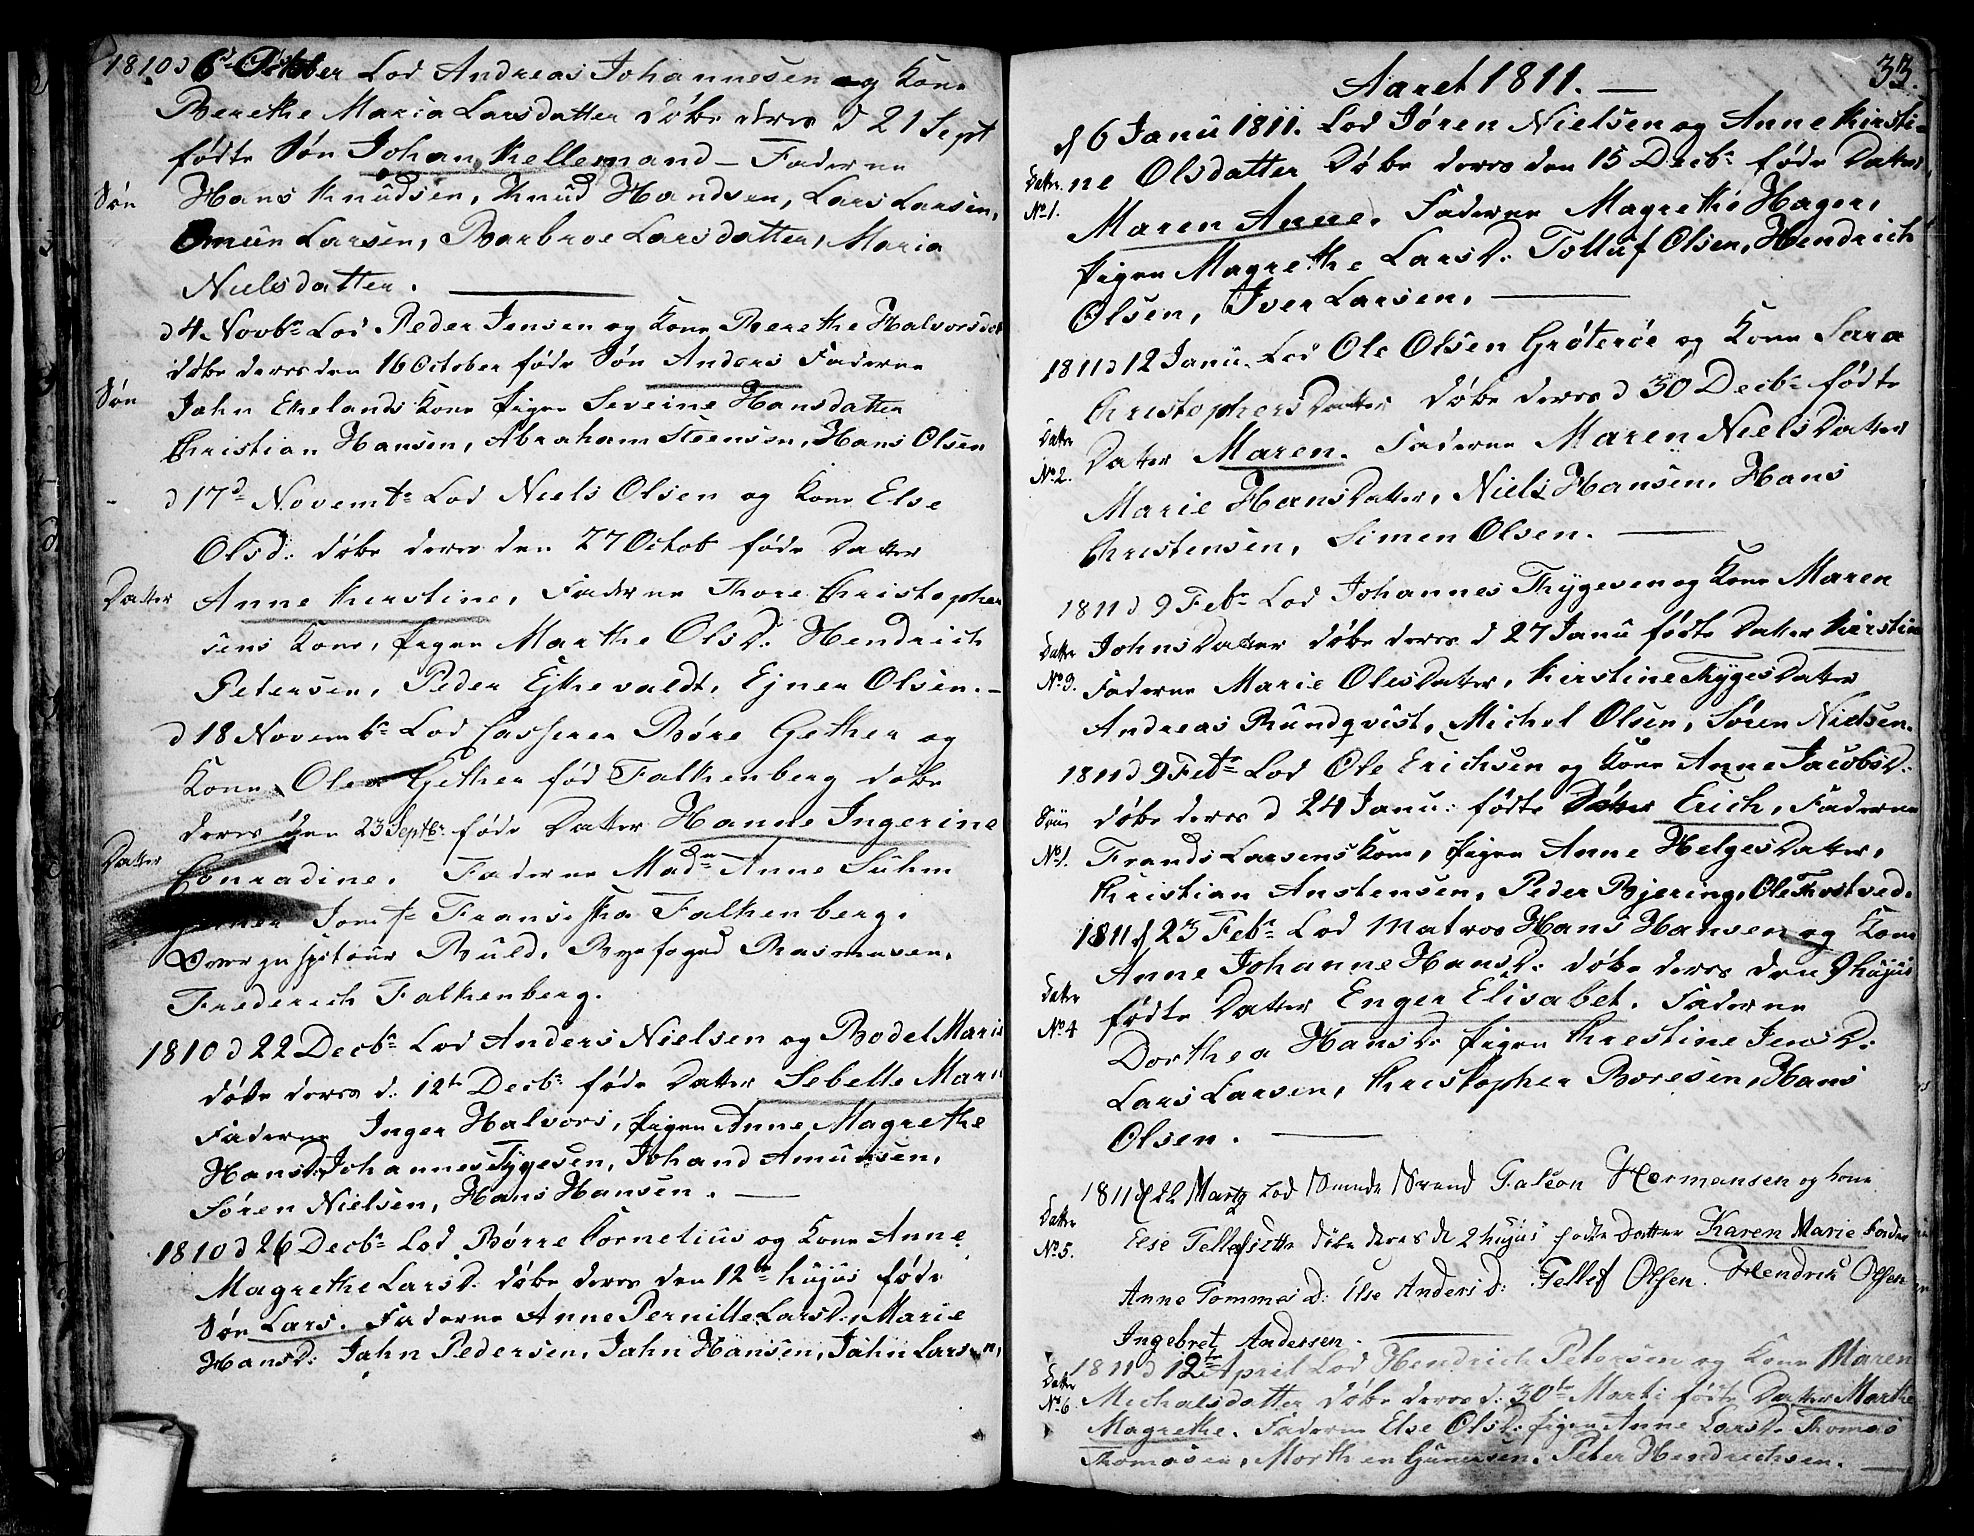 1810 d 6 October Lod Andreas Johannesen og Kone
Berethe Maria Larsdatter døbe deres d 21 Sept
fødte Søn Johan Kellemand - Faderne
Søn
Hans Knudsen, Knud Handsen, Lars Larsen,
Omun Larsen, Barbroe Larsdatter, Maria
Nielsdatter.
d 4 Novbr Lod Peder Jensen og Kone Berethe Halvorsdat
døbe deres den 16 October føde Søn Anders Faderne
Søn
Jahn Ekelands Kone Pigen Seveine Hansdatter
Christian Hansen, Abraham Steensen, Hans Olsen
d 17d Novembr Lod Niels Olsen og Kone Else
Olsd: døbe deres den 27 Octob føde Datter
Datter
Anne Kerstine, Faderne Thore Christopher
sens Kone, Pigen Marthe OlsD: Hendrich
Petersen, Peder Ejkevaldt, Ejner Olsen. -
d 18 Novembr Lod Casserer Børe Gether og
Kone Olea Gether fød Falkenberg døbe
deres den 23 Septbr føde Datter Hanne Ingerine
Datter
Conradine. Faderne Madm Anne Suhm
Jomfr Fransiska Falkenberg.
Buld, Byefoged Rasmusen,
Frederich Falkenberg.
1810 d 22 Decbr Lod Anders Nielsen og Bodel Marie
døbe deres d. 12te Decbr føde Datter Sebelle Marie
Faderne Inger Halvors, Pigen Anne Magrethe
HansD, Johannes Tygesen, Johand Amunsen,
Søren Nielsen, Hans Hansen.
1810 d 26 Decbr Lod Børre Cornelius og Kone Anne
Magrethe LarsD: døbe deres den 12te hujus føde
Søn Lars. Faderne Anne Pernille LarsD: Marie
HansD: Jahn Pedersen, Jahn Hansen, Jahn Larsen,
33.
Aaret 1811.
d 6 Janu 1811. Lod Jøren Nielsen og Anne Kirsti-
Datter No 1.
ne Olsdatter Døbe deres den 15 Decbr føde Datter
Maren Anne. Faderne Magrethe Hager,
Pigen Magrethe LarsD: Tolluf Olsen, Hendrich
Olsen, Iver Larsen.
1811 d 12 Janu. Lod Ole Olsen Grøterøe og Kone Sara
ChristophersDatter døbe deres d 30 Decbr fødte
Datter No 2.
Datter Maren. Faderne Maren NielsDatter
Marie HansDatter, Niels Hansen, Hans
Christensen, Simen Olsen.
1811 d 9 Febr Lod Johannes Thygesen og Kone Maren
Datter No 3.
JohnsDatter døbe deres d 27 Janu fødte Datter Kirstine
Faderne Marie OlesDatter, Kirstine ThygesDatter
Andreas Rundqvist, Michel Olsen, Søren Nielsen.
1811 d 9 Febr Lod Ole Erichsen og Kone Anne JacobsD:
Søn No 1.
døbe deres d 24 Janu: fødte Erich, Faderne
Frands Larsens Kone, Pigen Anne HelgesDatter,
Christian Anstensen, Peder Bjering, Ole Thvetved.
1811 d 23 Febr Lod Matros Hans Hansen og Kone
Datter No 4
Anne Johanne HansD: døbe deres den 9 hujus
fødte Datter Enger Elisabet. Faderne
Dorthea HansD: Pigen Chrestine JensD:
Lars Larsen, Christopher Boresen, Hans
Olsen.
1811 d 22 Marty Lod Falcon Hermansen og Kone
Datter No 5.
Else døbe deres d 2 hujus fødte Datter Karen Marie
Anne TommesD: Else AndersD: Tellef Olsen. Hendrik Olsen
Ingebret Andersen.
1811 d 12te April Lod Hendrich Petersen og Kone Maren
Datter No 6
Michalsdatter døbe deres d: 30te Marti fødte Datter Marthe
Magrethe. Faderne Else OlsD: Pigen Anne LarsD. Thomas
Thomasen, Morthen Gunersen, Peter Hendrichsen.